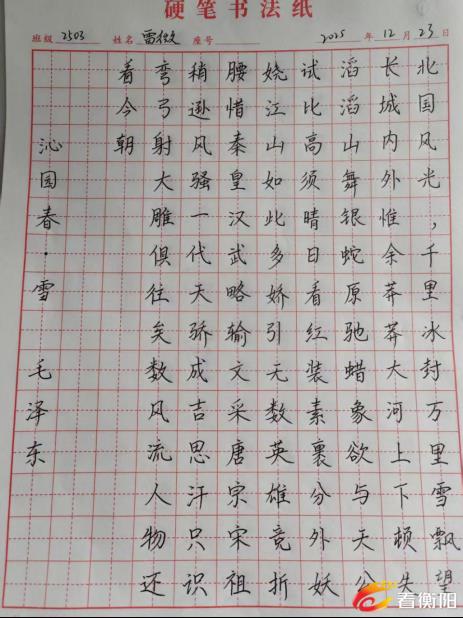 硬笔书法纸
班级 2503 姓名 雷 座号 2025 年 12 月 23 日
北国风光，千里冰封万里雪飘望
长城内外惟余莽莽大河上下顿失
滔滔山舞银蛇原驰蜡象欲与天公
试比高须晴日看红装素裹分外妖
娆江山如此多娇引无数英雄竞折
腰惜秦皇汉武略输文采唐宗宋祖
稍逊风骚一代天骄成吉思汗只识
弯弓射大雕俱往矣数风流人物还
着今朝
沁园春·雪 毛泽东
看衡阳